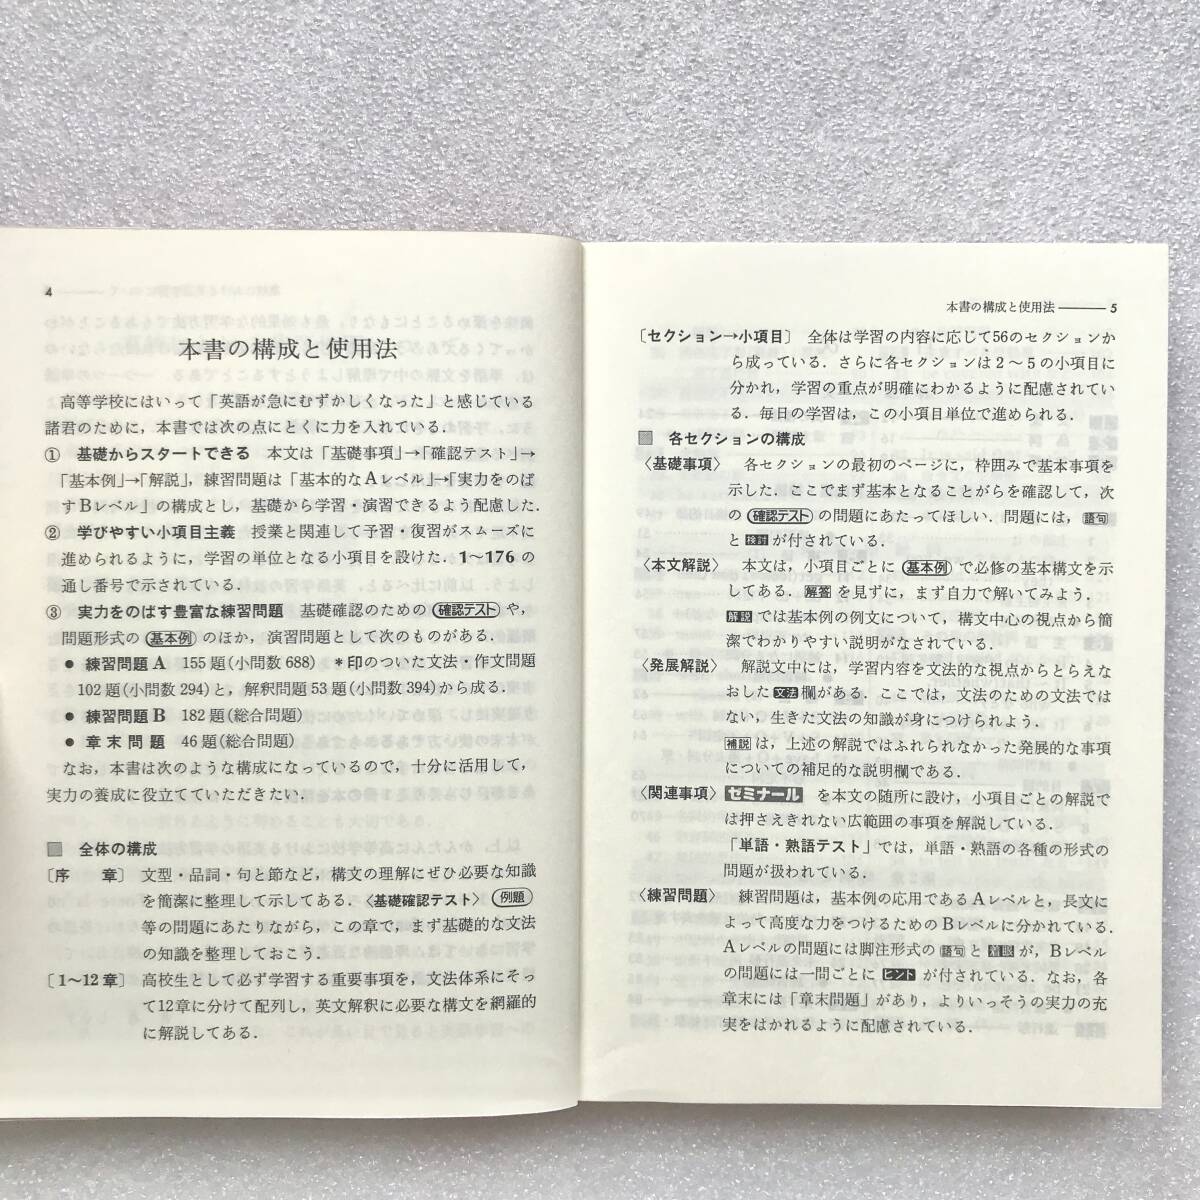 4
本書の構成と使用法
高等学校にはいって「英語が急にむずかしくなった」と感じている
諸君のために，本書では次の点にとくに力を入れている．
① 基礎からスタートできる　本文は「基礎事項」→「確認テスト」→
「基本例」→「解説」，練習問題は「基本的なAレベル」→「実力をのば
すBレベル」の構成とし，基礎から学習・演習できるよう配慮した．
② 学びやすい小項目主義　授業と関連して予習・復習がスムーズに
進められるように，学習の単位となる小項目を設けた．1～176 の
通し番号で示されている．
③ 実力をのばす豊富な練習問題　基礎確認のための 確認テスト や，
問題形式の 基本例 のほか，演習問題として次のものがある．
● 練習問題A　155題(小問数688)　＊印のついた文法・作文問題
102題(小問数294)と，解釈問題53題(小問数394)から成る．
● 練習問題B　182題(総合問題)
● 章末問題　46題(総合問題)
なお，本書は次のような構成になっているので，十分に活用して，
実力の養成に役立てていただきたい．
全体の構成
〔序　章〕　文型・品詞・句と節など，構文の理解にぜひ必要な知識
を簡潔に整理して示してある．〈基礎確認テスト〉 例題
等の問題にあたりながら，この章で，まず基礎的な文法
の知識を整理しておこう．
〔1～12章〕　高校生として必ず学習する重要事項を，文法体系にそっ
て12章に分けて配列し，英文解釈に必要な構文を網羅的
に解説してある．
本書の構成と使用法 ――― 5
〔セクション→小項目〕　全体は学習の内容に応じて56のセクションか
ら成っている．さらに各セクションは2～5の小項目に
分かれ，学習の重点が明確にわかるように配慮されてい
る．毎日の学習は，この小項目単位で進められる．
各セクションの構成
〈基礎事項〉　各セクションの最初のページに，枠囲みで基本事項を
示した．ここでまず基本となることがらを確認して，次
の 確認テスト の問題にあたってほしい．問題には，語句
と 検討 が付されている．
〈本文解説〉　本文は，小項目ごとに 基本例 で必修の基本構文を示
してある．解答 を見ずに，まず自力で解いてみよう．
解説 では基本例の例文について，構文中心の視点から簡
潔でわかりやすい説明がなされている．
〈発展解説〉　解説文中には，学習内容を文法的な視点からとらえな
おした 文法 欄がある．ここでは，文法のための文法では
ない，生きた文法の知識が身につけられよう．
補説 は，上述の解説ではふれられなかった発展的な事項
についての補足的な説明欄である．
〈関連事項〉 ゼミナール を本文の随所に設け，小項目ごとの解説で
は押さえきれない広範囲の事項を解説している．
「単語・熟語テスト」では，単語・熟語の各種の形式の
問題が扱われている．
〈練習問題〉　練習問題は，基本例の応用であるAレベルと，長文に
よって高度な力をつけるためのBレベルに分かれている．
Aレベルの問題には脚注形式の 語句 と 着眼 が，Bレベル
の問題には一問ごとに ヒント が付されている．なお，各
章末には「章末問題」があり，よりいっそうの実力の充
実をはかれるように配慮されている．